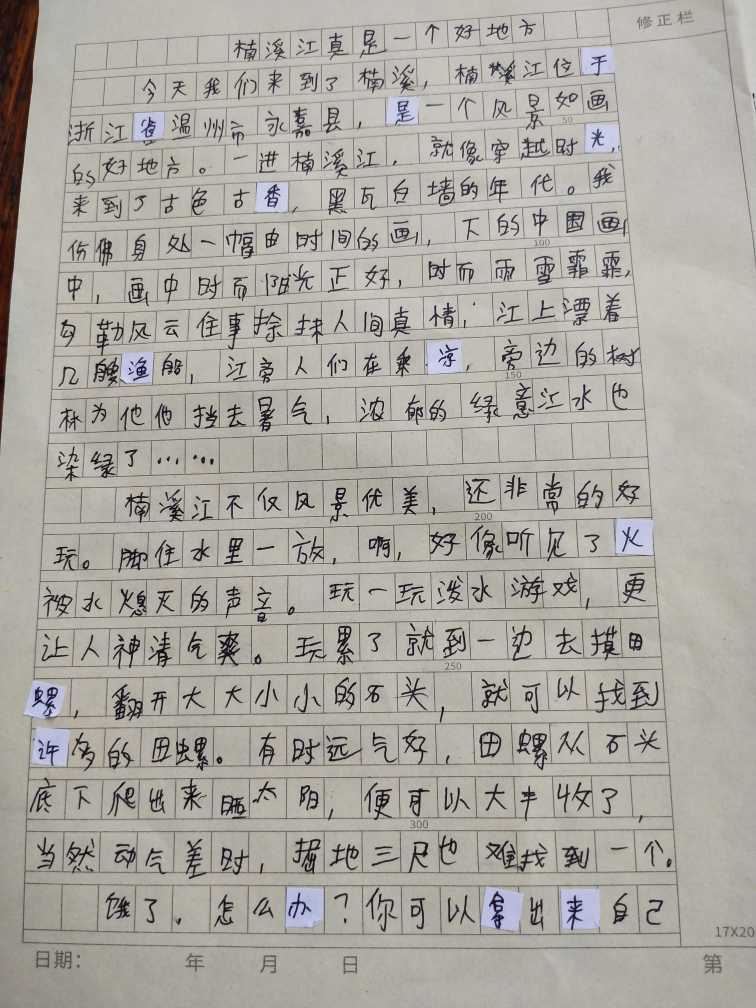 修正栏
楠溪江真是一个好地方
今天我们来到了楠溪，楠溪江位于
浙江省温州市永嘉县，是一个风景如画
50
的好地方。一进楠溪江，就像穿越时光，
来到了古色古香，黑瓦白墙的年代。我
仿佛身处一幅由时间的画，下的中国画
100
中，画中时而阳光正好，时而雨雪霏霏，
勾勒风云往事捺抹人间真情，江上漂着
几艘渔船，江旁人们在乘凉，旁边的树
150
林为他他挡去暑气，浓郁的绿意江水也
染绿了……
楠溪江不仅风景优美，还非常的好
200
玩。脚往水里一放，啊，好像听见了火
被水熄灭的声音。玩一玩泼水游戏，更
让人神清气爽。玩累了就到一边去摸田
250
螺，翻开大大小小的石头，就可以找到
许多的田螺。有时运气好，田螺从石头
底下爬出来晒太阳，便可以大丰收了，
300
当然动气差时，掘地三尺也难找到一个。
饿了。怎么办？你可以拿出来自己
17X20
日期： 年 月 日 第